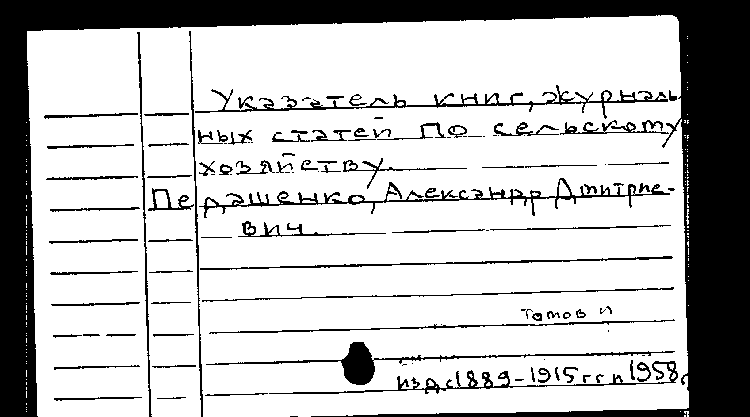 Указатель книг, журналь
ных статей по сельскому
хозяйству.
Педашенко, Александр Дмитрие-
вич.
томов п
изд.с1889-1915гг и 1958г